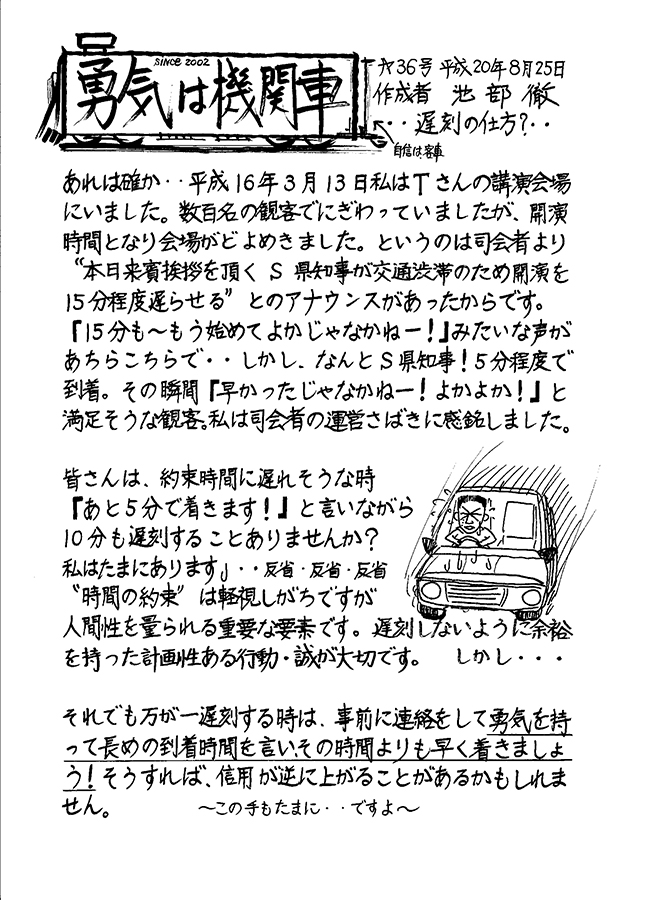 SINCE 2002
勇気は機関車
㐧36号 平成20年8月25日
作成者 池部 徹
・・遅刻の仕方?・・
自信は客車
あれは確か・・平成16年3月13日私はTさんの講演会場
にいました。数百名の観客でにぎわっていましたが、開演
時間となり会場がどよめきました。というのは司会者より
“本日来賓挨拶を頂く S 県知事が交通渋滞のため開演を
15分程度遅らせる” とのアナウンスがあったからです。
『15分も〜もう始めてよかじゃなかねー!』みたいな声が
あちらこちらで・・しかし、なんとS県知事!5分程度で
到着。その瞬間『早かったじゃなかねー!よかよか!』と
満足そうな観客。私は司会者の運営さばきに感銘しました。
皆さんは、約束時間に遅れそうな時
『あと5分で着きます!』と言いながら
10分も遅刻することありませんか?
私はたまにあります」・・反省・反省・反省
“時間の約束” は軽視しがちですが
人間性を量られる重要な要素です。遅刻しないように余裕
を持った計画性ある行動・誠が大切です。 しかし・・・
それでも万が一遅刻する時は、事前に連絡をして勇気を持
って長めの到着時間を言い、その時間よりも早く着きましょ
う!そうすれば、信用が逆に上がることがあるかもしれま
せん。 〜この手もたまに・・ですよ〜